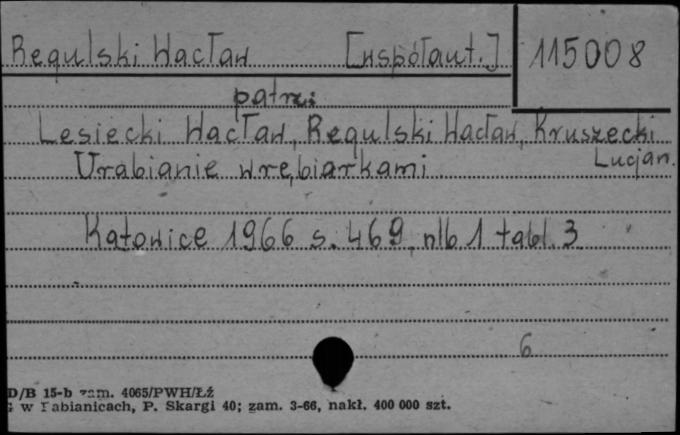 Regulski Wacław [współaut.] 115008
patrz:
Lesiecki Wacław, Regulski Wacław, Kruszecki
Lucjan.
Urabianie wrębiarkami
Katowice 1966 s. 469, nlb 1 tabl. 3
6
D/B 15-b zam. 4065/PWH/Łź
w Pabianicach, P. Skargi 40; zam. 3-66, nakł. 400 000 szt.